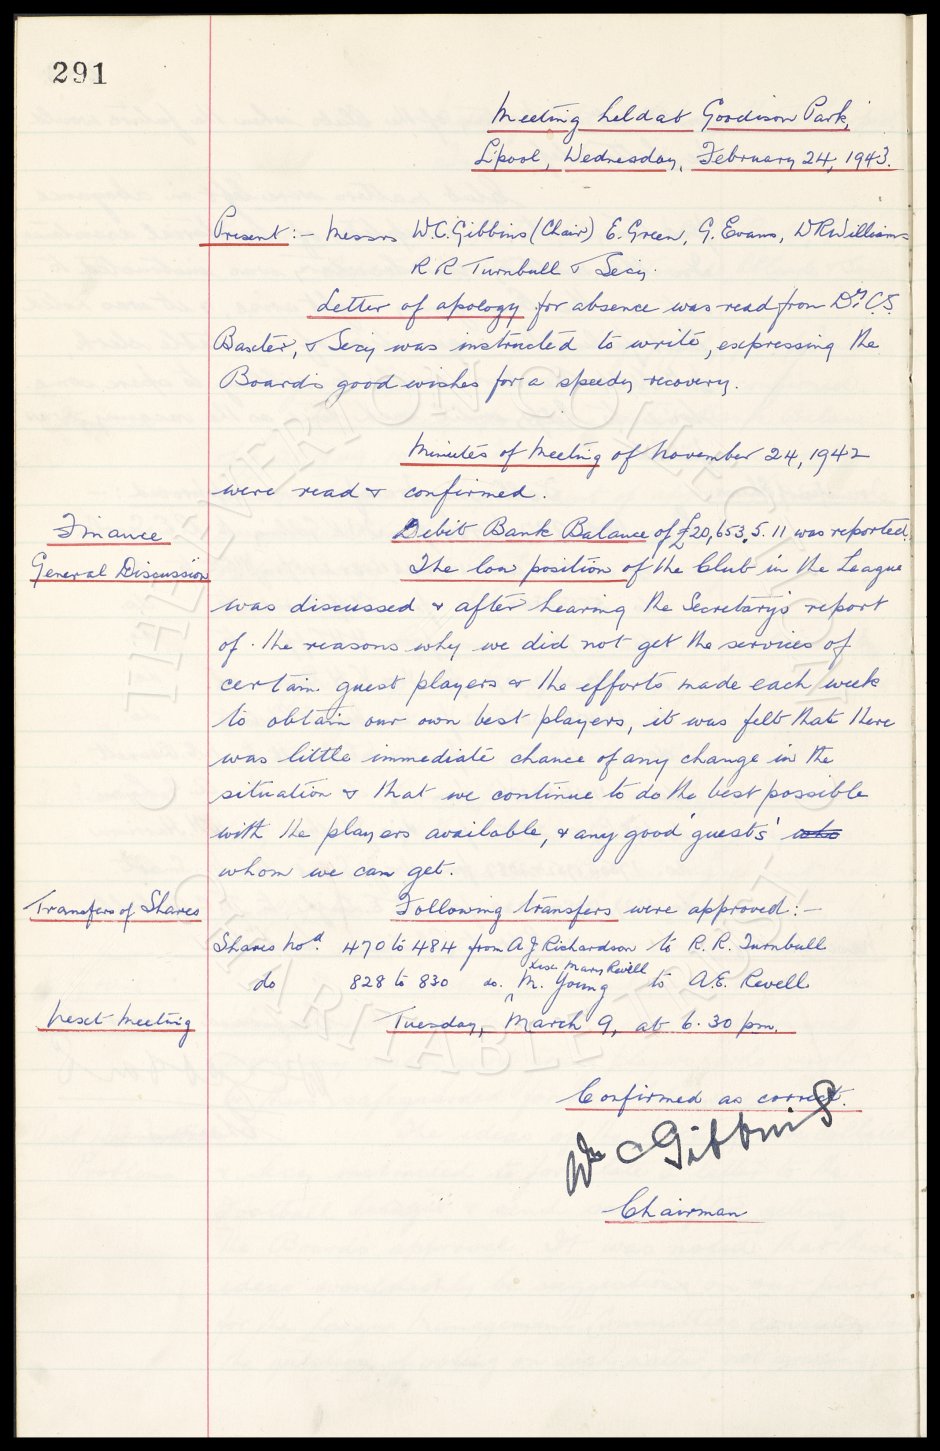 291
Meeting held at Goodison Park,
L'pool, Wednesday, February 24, 1943.
Present:- Messrs W.C. Gibbins (Chair) E. Green, G. Evans, W R Williams
R R Turnbull & Secy.
Letter of apology for absence was read from Dr. C.S.
Baxter, & Secy was instructed to write, expressing the
Board's good wishes for a speedy recovery.
Minutes of Meeting of November 24, 1942
were read & confirmed.
Finance Debit Bank Balance of £20,653.5.11 was reported.
General Discussion The low position of the Club in the League
was discussed & after hearing the Secretary's report
of the reasons why we did not get the services of
certain guest players & the efforts made each week
to obtain our own best players, it was felt that there
was little immediate chance of any change in the
situation & that we continue to do the best possible
with the players available, & any good 'guests' who
whom we can get.
Transfers of Shares Following transfers were approved:-
Shares Nod. 470 to 484 from A J Richardson to R. R. Turnbull
Mary Revell
do 828 to 830 do. M. Young to A.E. Revell
Next Meeting Tuesday, March 9, at 6.30 pm.
Confirmed as correct.
Wm C Gibbins
Chairman
THE EVERTON COLLECTION
CHARITABLE TRUST